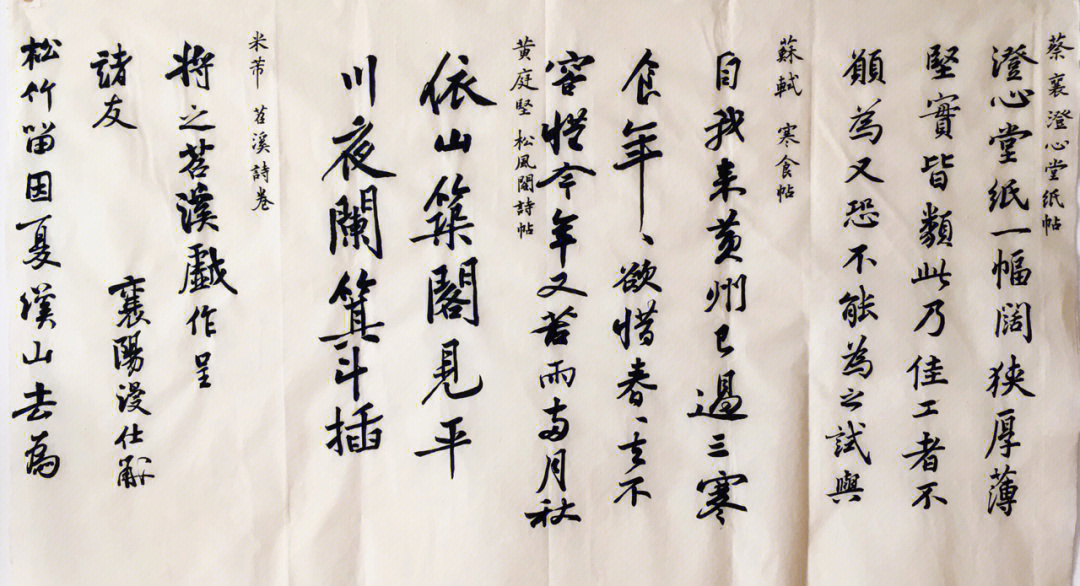 蔡襄 澄心堂纸帖
澄心堂纸一幅阔狭厚薄
堅實皆類此乃佳工者不
願為又恐不能為之試與
蘇軾 寒食帖
自我来黄州已過三寒
食年、欲惜春、去不
容惜今年又苦雨两月秋
黄庭堅 松風閣詩帖
依山築閣見平
川夜闌箕斗插
米芾 苕溪詩卷
将之苕溪戲作呈
諸友
襄陽漫仕黻
松竹留因夏溪山去為